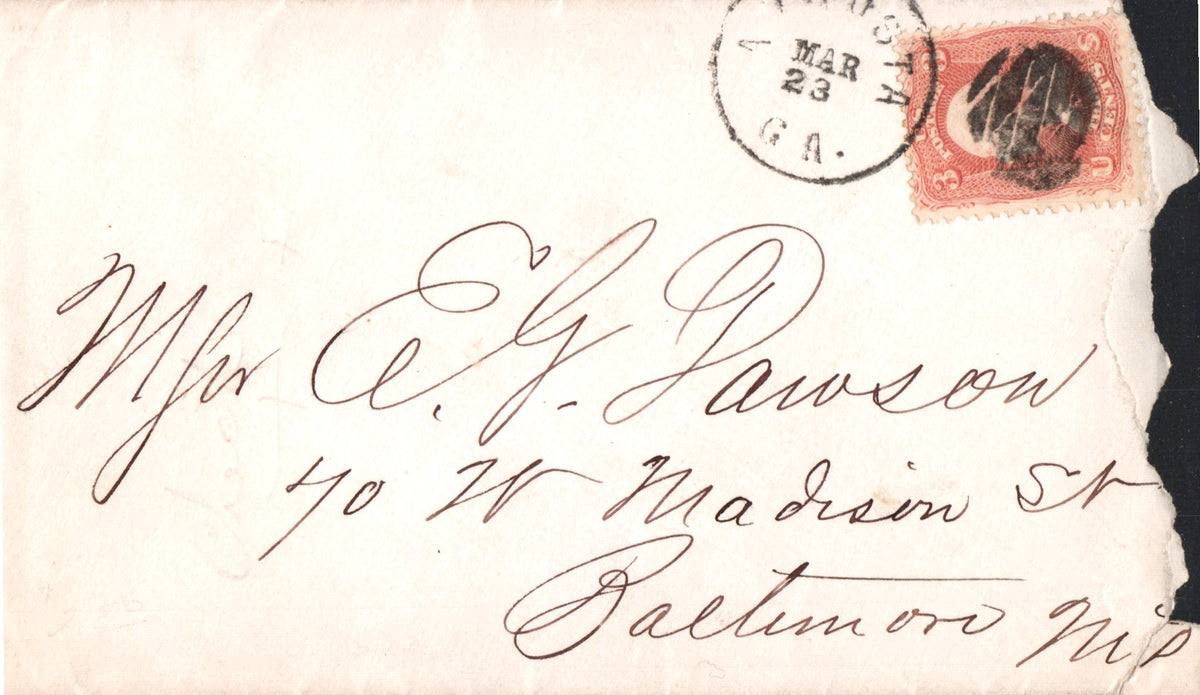 AUGUSTA
MAR
23
GA.
3 3
U S
POSTAGE
THREE CENTS
Mr
E. G. Dawson
70 W Madison St
Baltimore Md